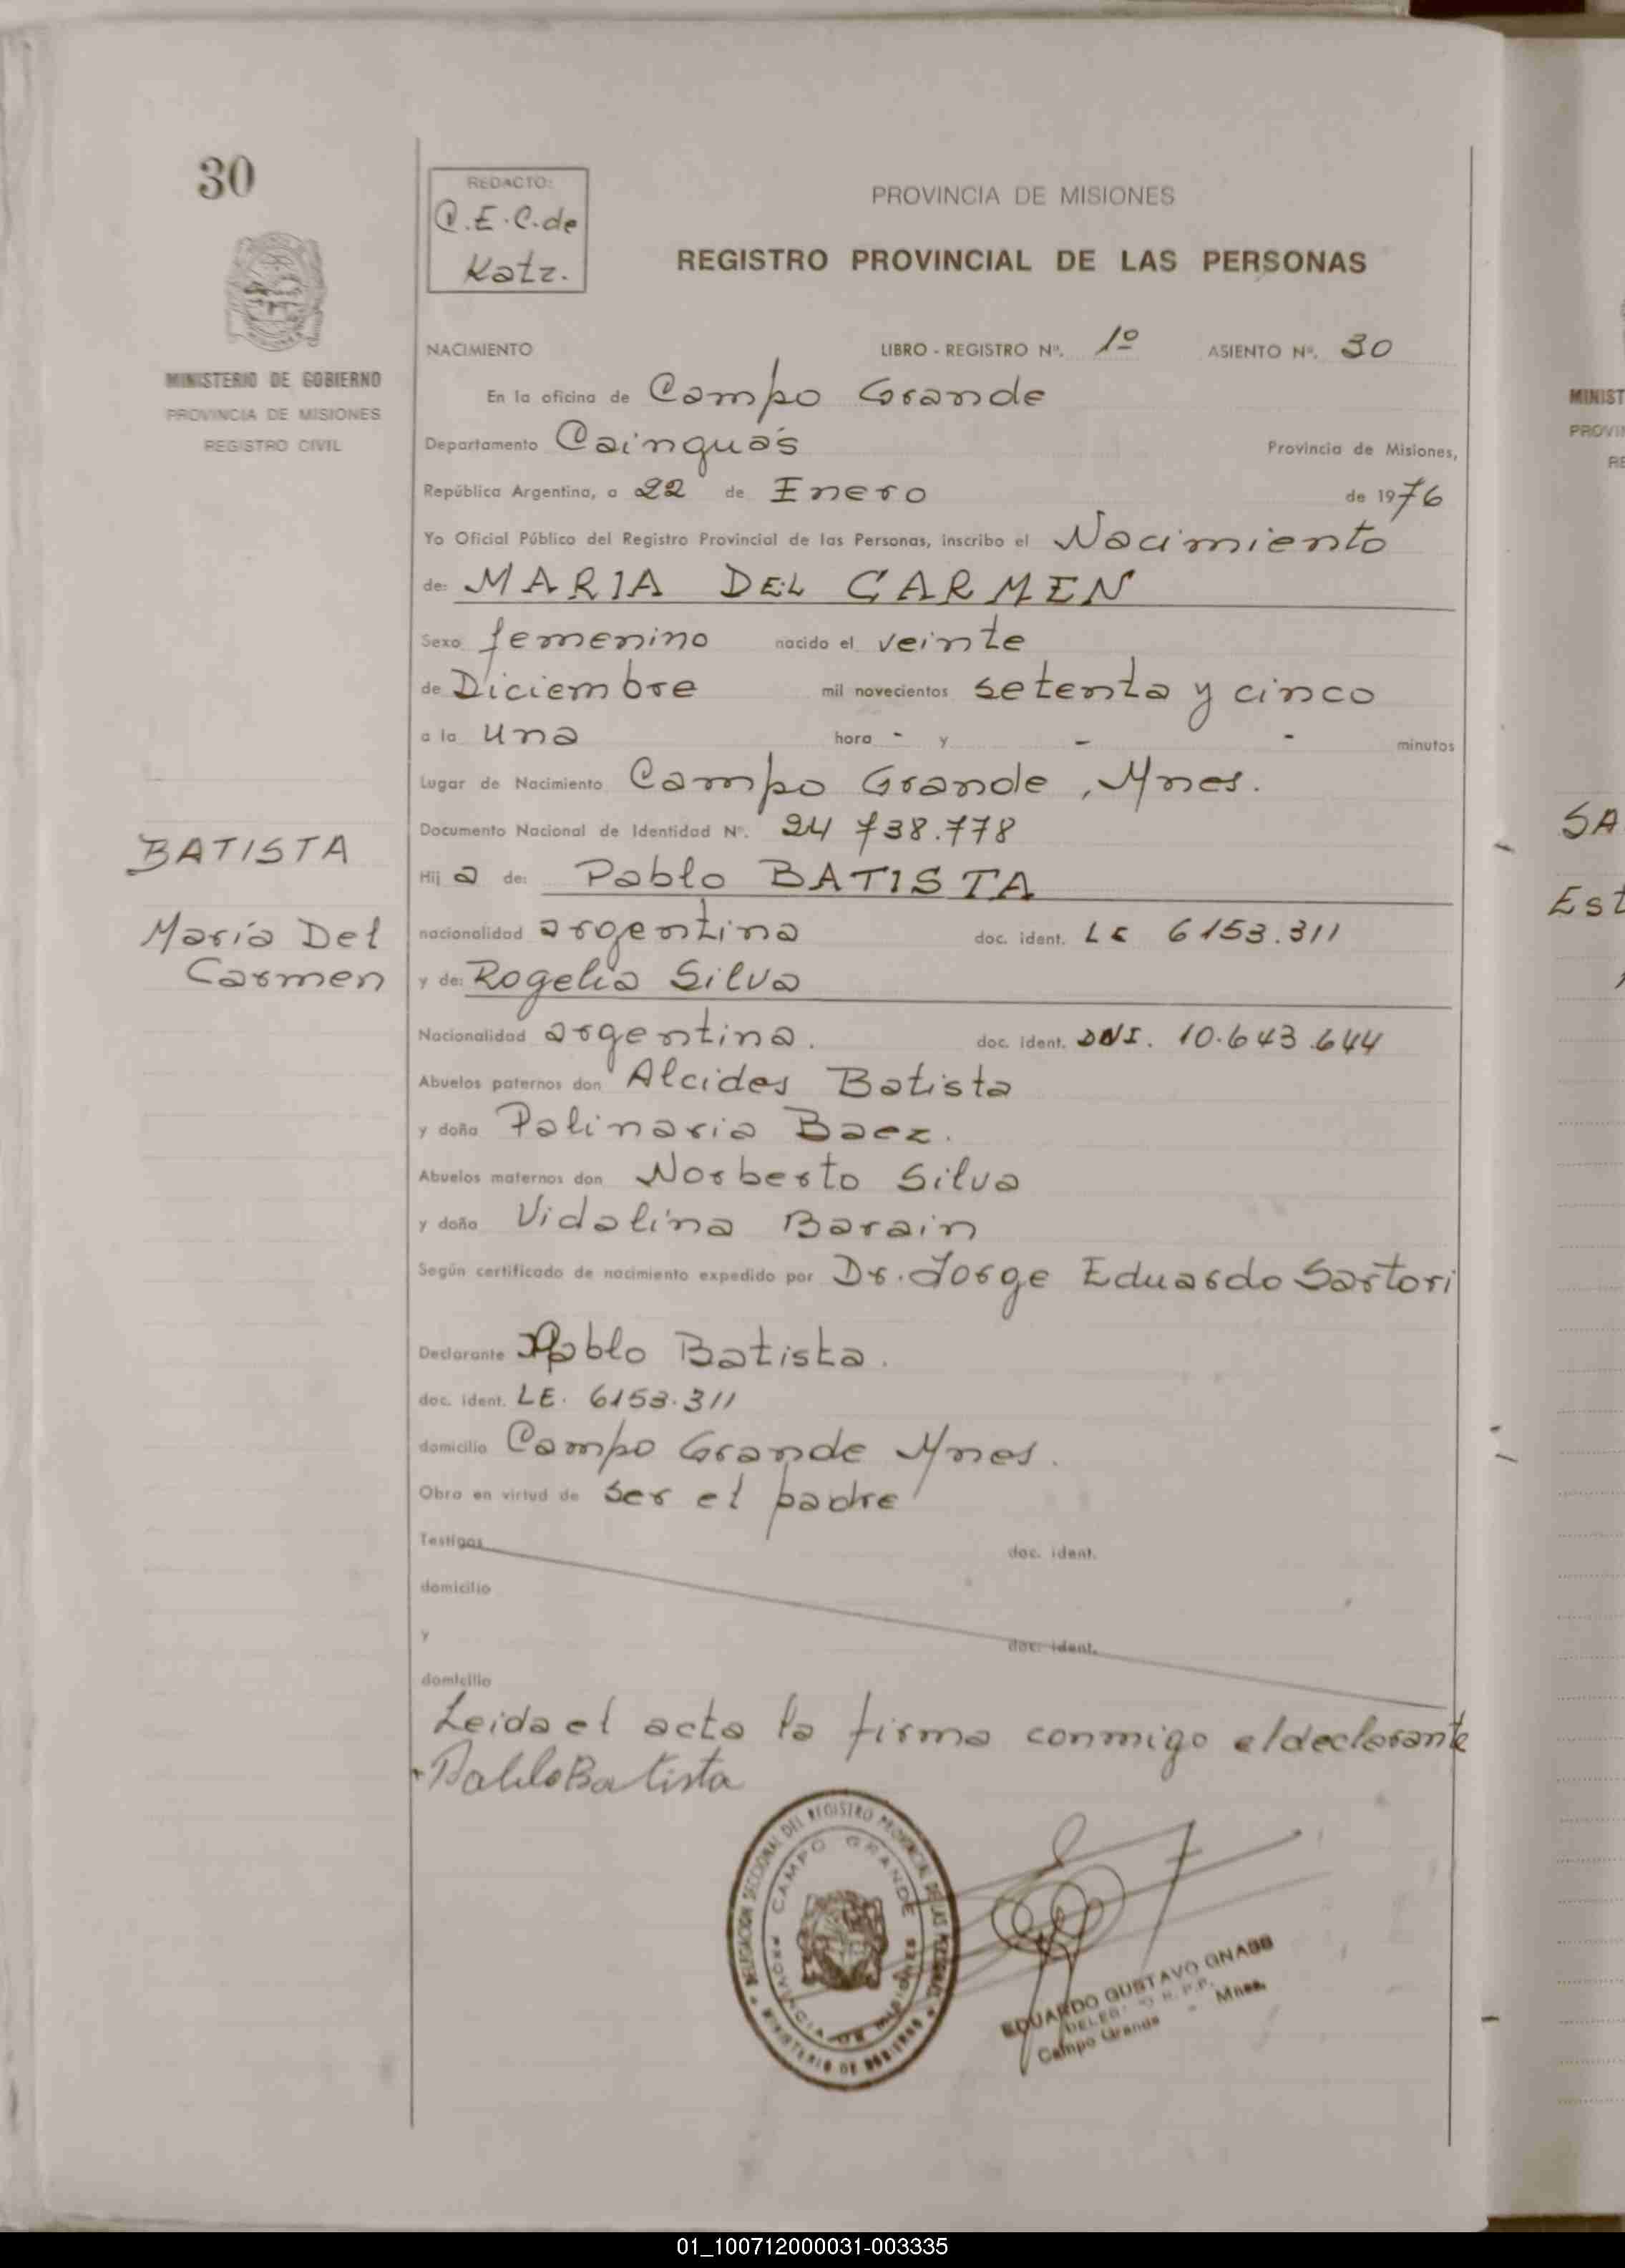 30
REDACTO:
C.E.C.de
Katz.
PROVINCIA DE MISIONES
REGISTRO PROVINCIAL DE LAS PERSONAS
MINISTERIO DE GOBIERNO
PROVINCIA DE MISIONES
REGISTRO CIVIL
NACIMIENTO LIBRO - REGISTRO Nº. 1º ASIENTO Nº. 30
En la oficina de Campo Grande
Departamento Cainguás Provincia de Misiones,
República Argentina, a 22 de Enero de 1976
Yo Oficial Público del Registro Provincial de las Personas, inscribo el Nacimiento
de: MARIA DEL CARMEN
Sexo femenino nacido el veinte
de Diciembre mil novecientos setenta y cinco
a la una hora - y - - minutos
Lugar de Nacimiento Campo Grande, Mnes.
Documento Nacional de Identidad Nº. 24 738.778
BATISTA
Hij a de: Pablo BATISTA
María Del
Carmen
nacionalidad argentina doc. ident. LE 6153.311
y de: Rogelia Silva
Nacionalidad argentina. doc. ident. DNI. 10.643.644
Abuelos paternos don Alcides Batista
y doña Polinaria Baez.
Abuelos maternos don Norberto Silva
y doña Vidalina Barain
Según certificado de nacimiento expedido por Dr. Jorge Eduardo Sartori
Declarante Pablo Batista.
doc. ident. LE. 6153.311
domicilio Campo Grande Mnes.
Obra en virtud de ser el padre
Testigos doc. ident.
domicilio
y doc. ident.
domicilio
Leida el acta la firma conmigo el declarante
Pablo Batista
DELEGACION SECCIONAL DEL REGISTRO PROVINCIAL DE LAS PERSONAS
CAMPO GRANDE
PROVINCIA DE MISIONES
MINISTERIO DE GOBIERNO
EDUARDO GUSTAVO GNABB
R.P.P.
Campo Grande Mnes.
MINIST
PROVIN
RE
SA
Est
01_100712000031-003335